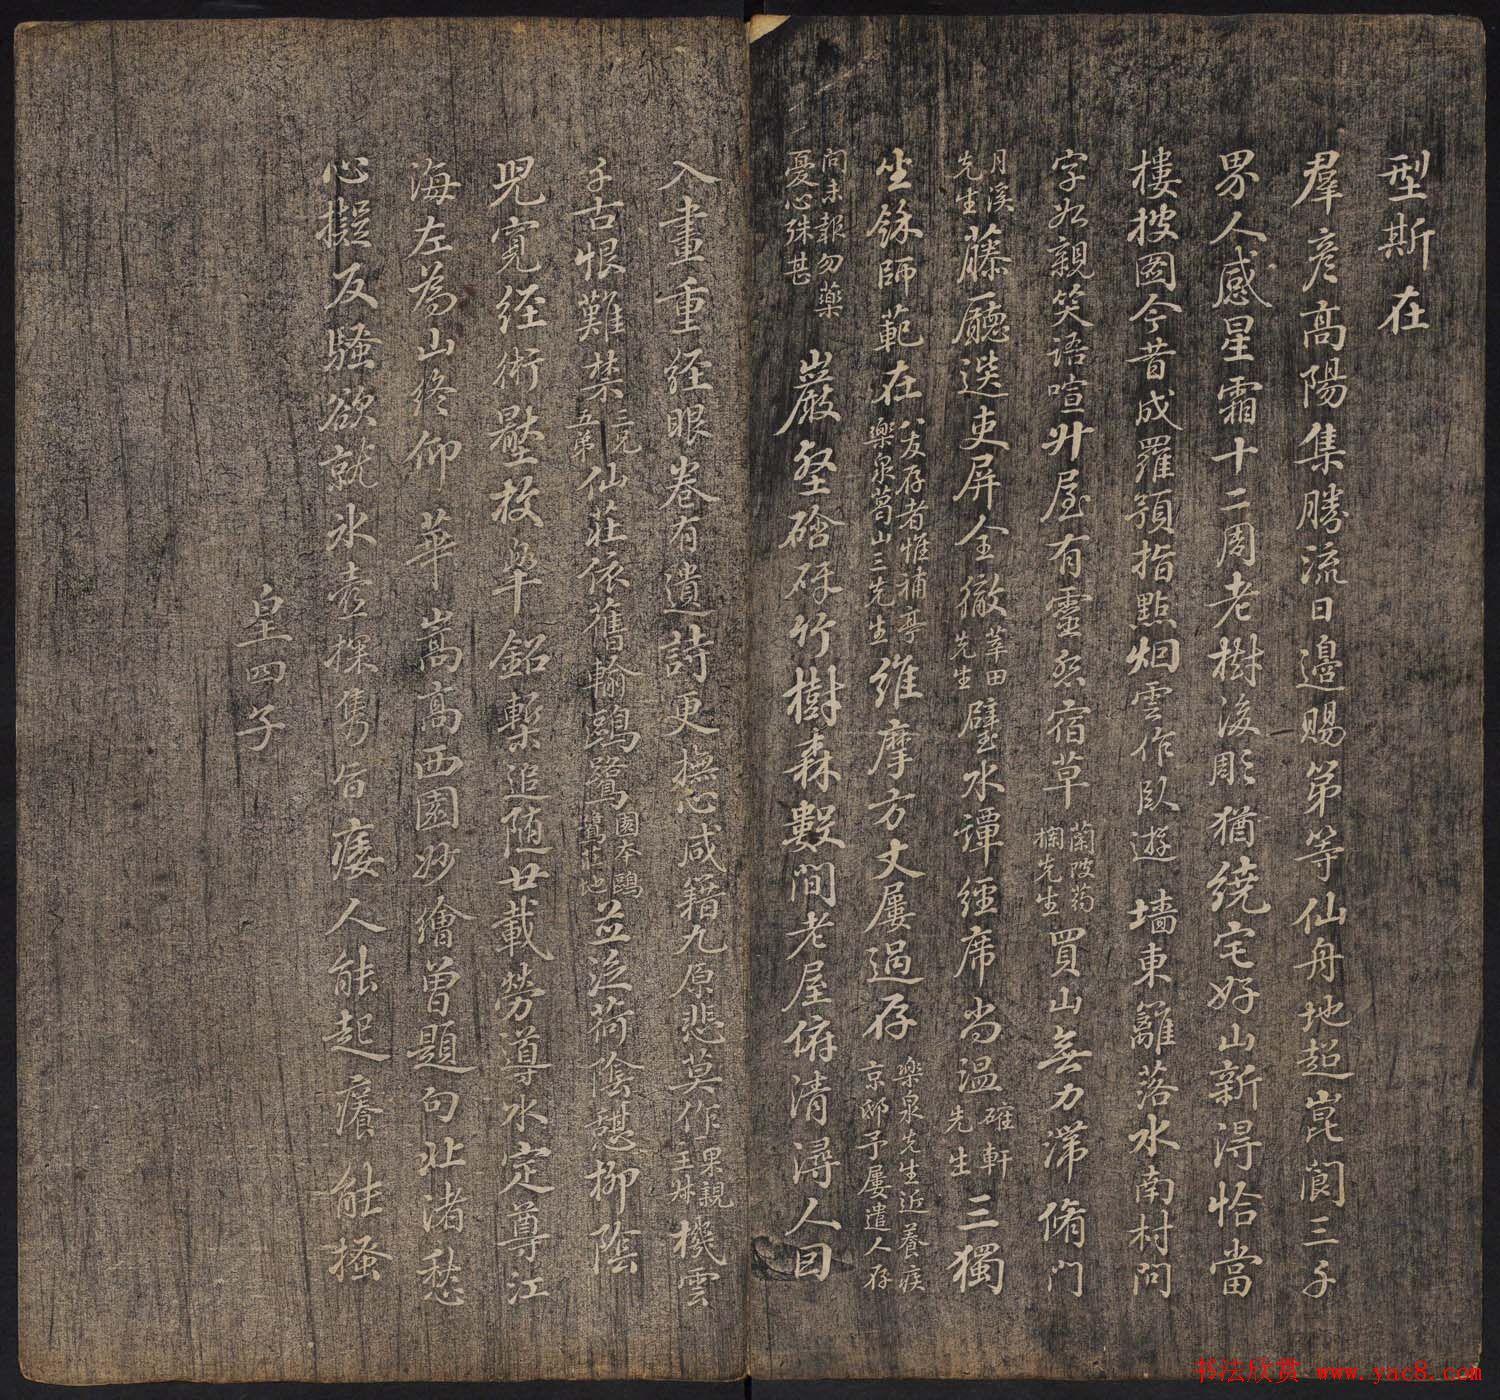 型斯在
羣彥高陽集勝流日邊賜第等仙舟地超崑閬三千
界人感星霜十二周老樹後彫猶繞宅好山新得恰當
樓披圖今昔成羅預指點烟雲作臥遊 墻東籬落水南村問
字如親笑語喧 廾屋有靈 宿草 蘭陂筠
桐先生 買山無力滯脩門
月溪
先生 藤廳送吏屏金徹 華田
先生 璧水譚經席尚溫 確軒
先生 三獨
坐餘師範在 八友存者惟補亭
樂泉葛山三先生 維摩方丈屢過存 樂泉先生近養疾
京邸予屢遣人存
問未報勿藥
憂心殊甚 巖壑 竹樹森數間老屋俯清潯人因
入畫重經眼卷有遺詩更撫心咸籍九原悲莫作 果親
王叔 機雲
千古恨難禁 三兄
五弟 仙莊依舊輸鷗鷺 園本鷗
舊地 並泛荷陰憩柳陰
兒寬經術壓枚皋銘槧追隨廿載勞導水定尊江
海左為山終仰華嵩高西園妙繪曾題句北渚愁
心擬反騷欲就水壺探雋旨痿人能起癢能搔
皇四子
书法欣赏 www.yac8.com